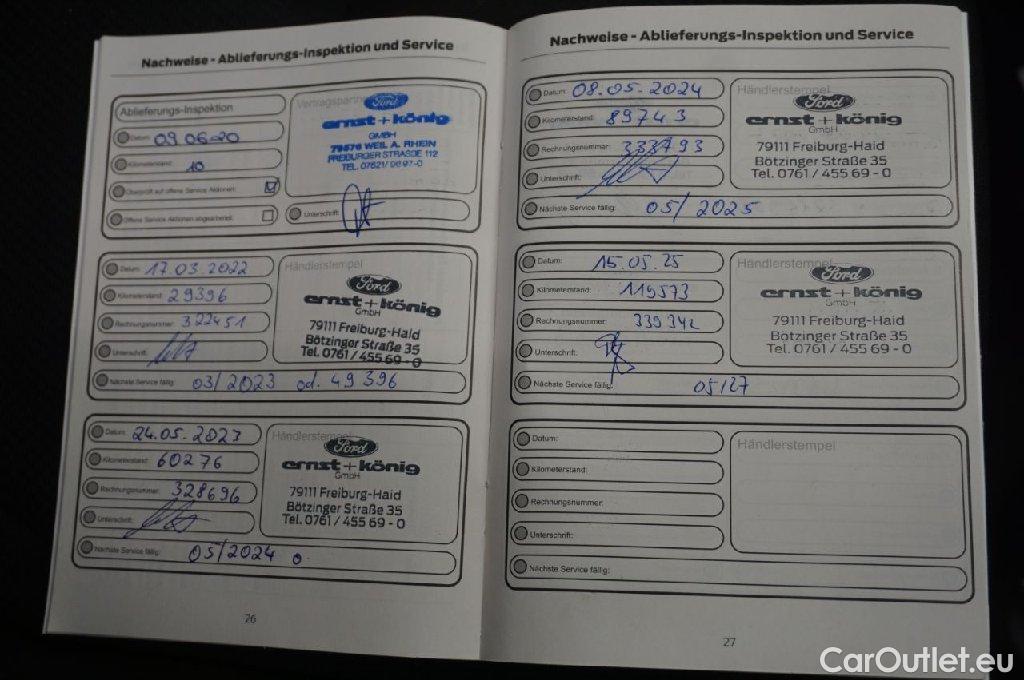 Nachweise - Ablieferungs-Inspektion und Service
Ablieferungs-Inspektion
Datum: 09.06.20
Kilometerstand: 10
Überprüft auf offene Service Aktionen:
Offene Service Aktionen abgearbeitet:
Vertragspartner
Ford
ernst+könig
GMBH
79576 WEIL A. RHEIN
FREIBURGER STRASSE 112
TEL. 07621/
Unterschrift:
Datum: 17.03.2022
Kilometerstand: 29396
Rechnungsnummer: 322451
Unterschrift:
Händlerstempel
Ford
ernst+könig
GmbH
79111 Freiburg-Haid
Bötzinger Straße 35
Tel. 0761/455 69-0
Nächste Service fällig: 03/2023 od. 49396
Datum: 24.05.2023
Kilometerstand: 60276
Rechnungsnummer: 328696
Unterschrift:
Händlerstempel
Ford
ernst+könig
GmbH
79111 Freiburg-Haid
Bötzinger Straße 35
Tel. 0761/455 69-0
Nächste Service fällig: 05/2024 o.
26
Nachweise - Ablieferungs-Inspektion und Service
Datum: 08.05.2024
Kilometerstand: 89743
Rechnungsnummer: 333793
Unterschrift:
Händlerstempel
Ford
ernst+könig
GmbH
79111 Freiburg-Haid
Bötzinger Straße 35
Tel. 0761/455 69-0
Nächste Service fällig: 05/2025
Datum: 15.05.25
Kilometerstand: 119573
Rechnungsnummer: 339342
Unterschrift:
Händlerstempel
Ford
ernst+könig
GmbH
79111 Freiburg-Haid
Bötzinger Straße 35
Tel. 0761/455 69-0
Nächste Service fällig: 05/27
Datum:
Kilometerstand:
Rechnungsnummer:
Unterschrift:
Händlerstempel
Nächste Service fällig:
27
CarOutlet.eu